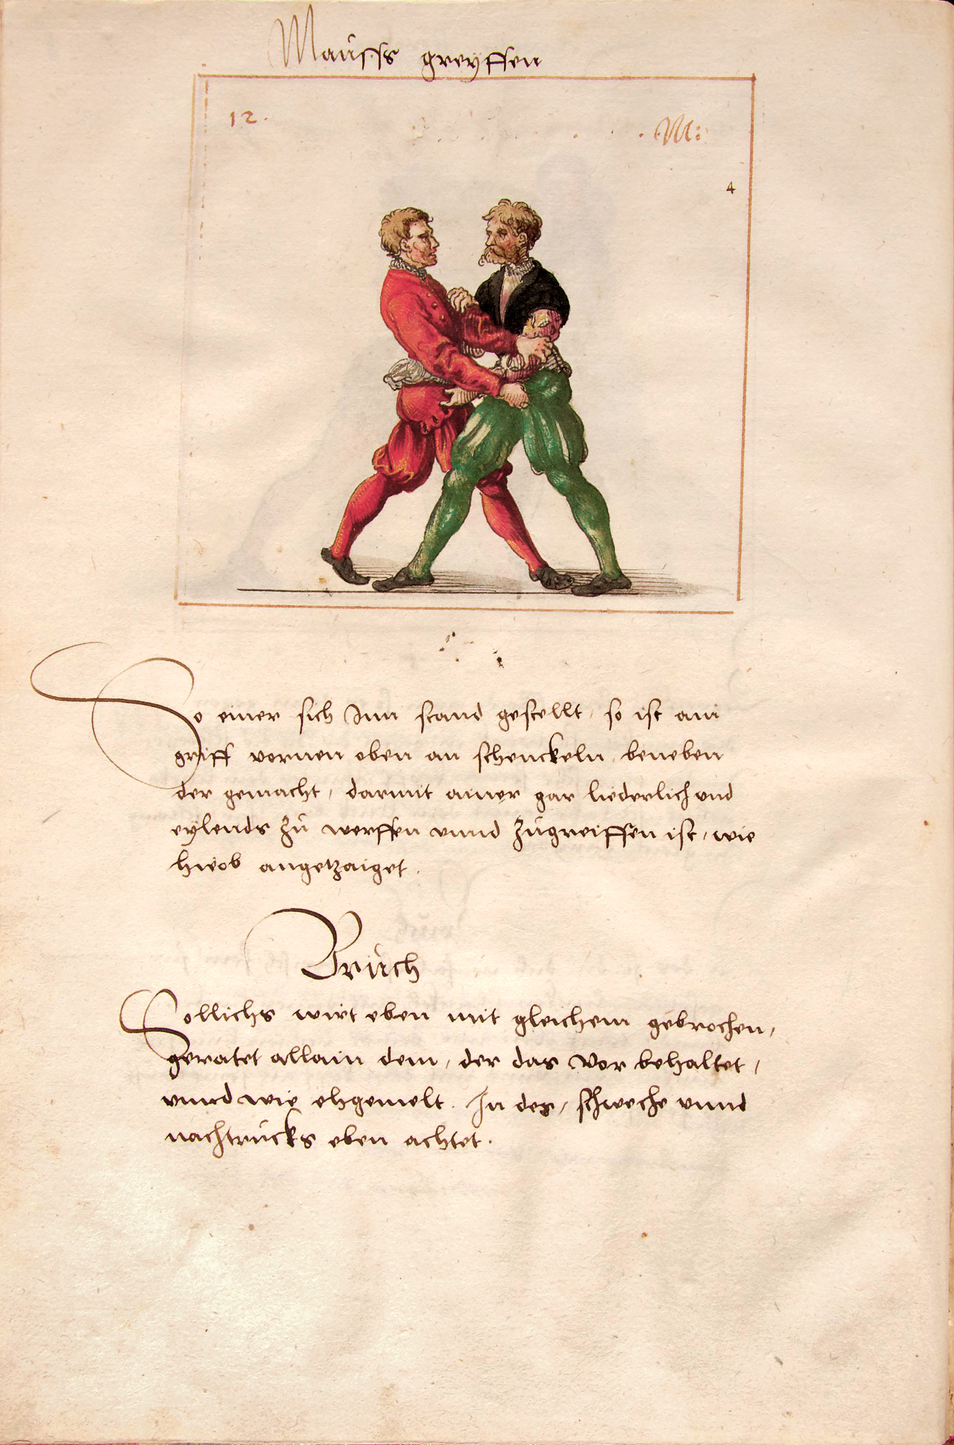 Mauſſs greyffen
12.
M:
4
So einer sich Inn stand gestellt, so ist ain
griff vornen oben an schenckeln beneben
der gemacht, darmit ainer gar liederlich vnd
eylends zů werffen vnnd zůgreiffen ist, wie
hieob angetzaiget.
Brůch
Sollichs wirt eben mit gleichem gebrochen,
geratet allain dem, der das Vor behaltet,
vnnd wie ehgemelt. In des, schweche vnnd
nachtrůcks eben achtet.